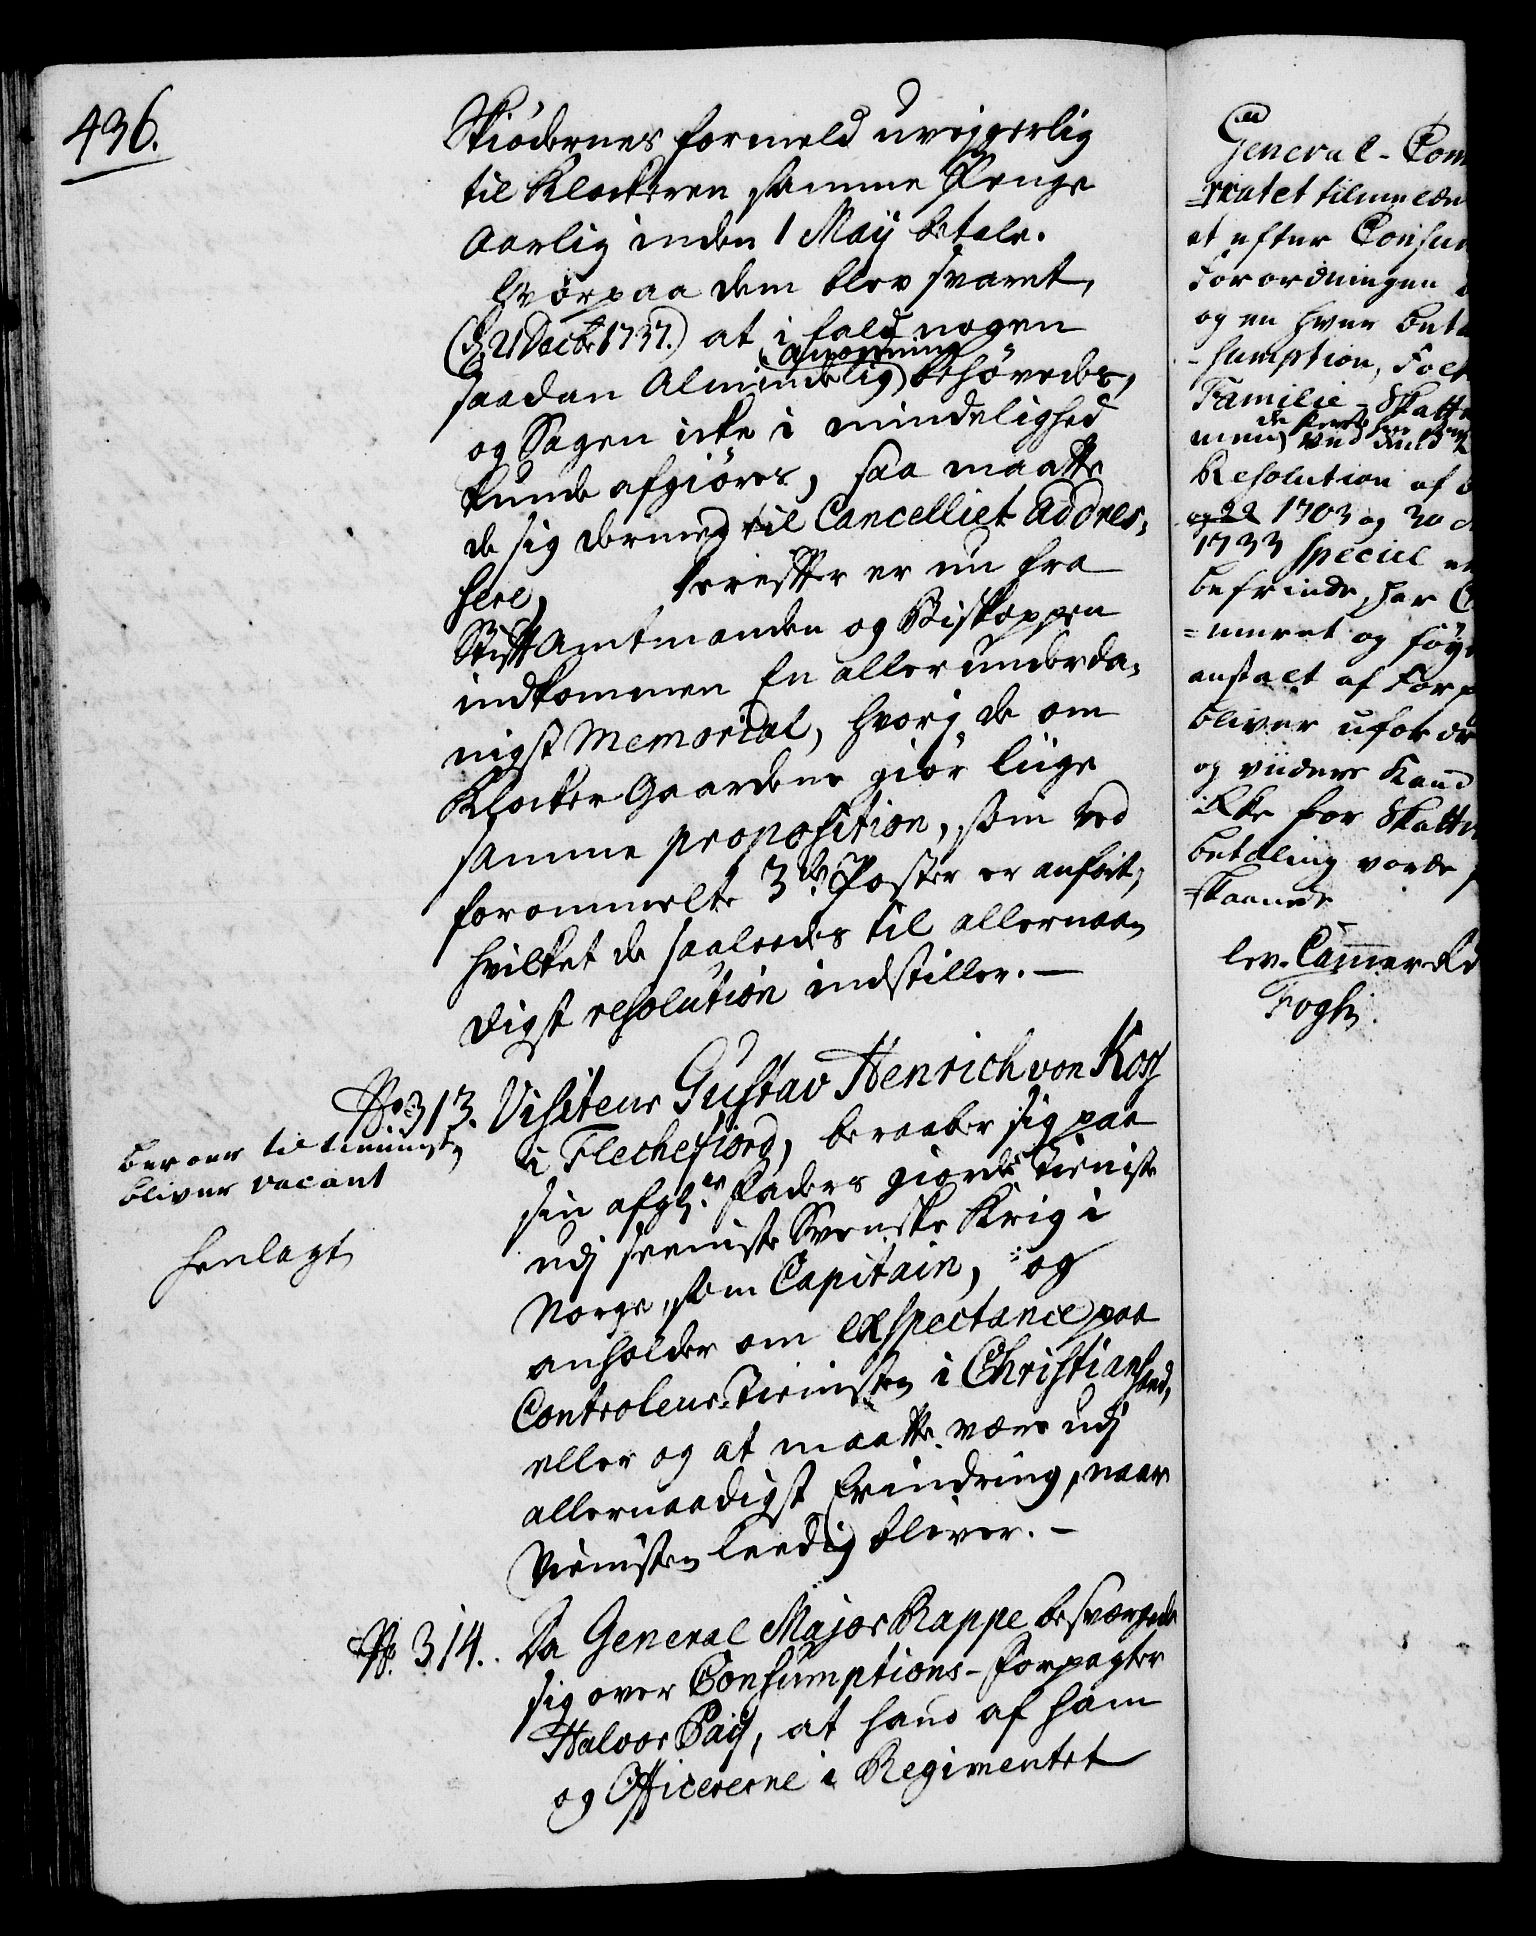 436.
Skiödernes formeld uvejgerlig
til Klockeren samme Penge
Aarlig inden 1 Maij betale.
Hvorpaa dem blev svaret,
(d. 21 Decbr 1737.) at i fald nogen
saadan Almindelig (anordning) behövedes,
og Sagen icke i mindelighed
kunde afgiöres, saa maatte
de sig dermed til Cancelliet addres-
sere, derefter er nu fra
Stiftamtmanden og Biskoppen
indkommen En allerunderda-
nigst Memorial, hvorj de om
Klocker Gaardene giör liige
samme proposition, som ved
forommelte 3de Poster er anfört,
hvilket de saaledes til allernaa-
digst resolution indstiller. —
No 313. Visiteur Gustav Henrich von Koss
i Flechefiord, beraaber sig paa
sin afgl. Faders giorde Tieniste
udj seeniste Svenske Krig i
Norge, som Capitain, og
anholder om exspectance paa
Controleur-Tienisten i Christiansand,
eller og at maatte være udj
allernaadigst Erindring, naar
Tienisten leedig bliver. —
beroer til tienisten
bliver vacant
henlagt
No. 314. Da General Major Rappe besværgede
sig over Consumptions-Forpagter
Halvor Paij, at hand af ham
og Officererne i Regimentet
General-Com
riatet tilmelde
at efter Consum
Forordningen
og en hver beta
-sumption, Folk
Familie-Skatte
men ved
Resolution af
1703 og 30
1733 speciel
befriede, har
anstalt af Forp
bliver ufordr
og viidere Hand
ikke for Skatte
betaling vorde
skaanede
lev. Cammer Rd
Fogh